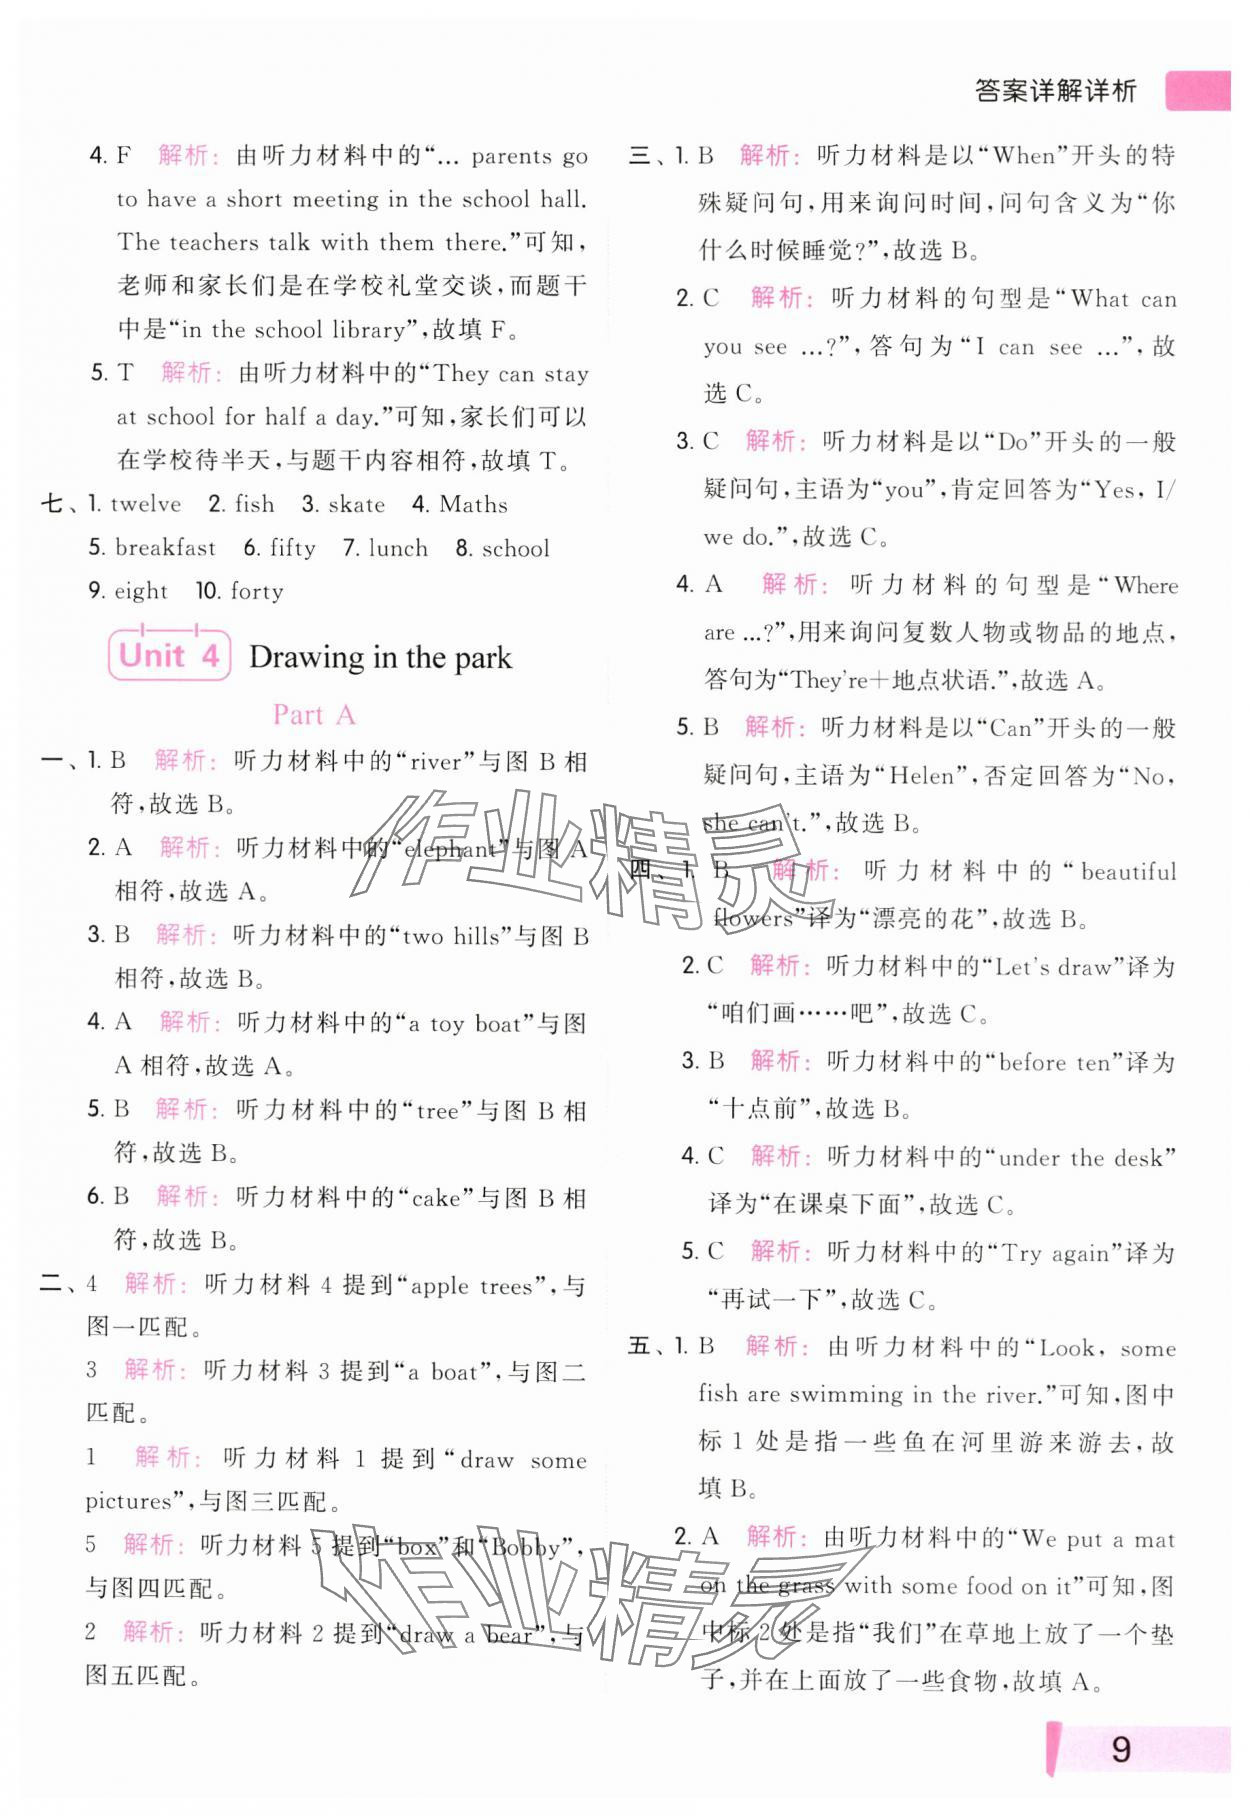 答案详解详析
4. F 解析：由听力材料中的“… parents go
to have a short meeting in the school hall.
The teachers talk with them there.”可知，
老师和家长们是在学校礼堂交谈，而题干
中是“in the school library”，故填 F。
5. T 解析：由听力材料中的“They can stay
at school for half a day.”可知，家长们可以
在学校待半天，与题干内容相符，故填 T。
七、1. twelve 2. fish 3. skate 4. Maths
5. breakfast 6. fifty 7. lunch 8. school
9. eight 10. forty
Unit 4 Drawing in the park
Part A
一、1. B 解析：听力材料中的“river”与图 B 相
符，故选 B。
2. A 解析：听力材料中的“elephant”与图 A
相符，故选 A。
3. B 解析：听力材料中的“two hills”与图 B
相符，故选 B。
4. A 解析：听力材料中的“a toy boat”与图
A 相符，故选 A。
5. B 解析：听力材料中的“tree”与图 B 相
符，故选 B。
6. B 解析：听力材料中的“cake”与图 B 相
符，故选 B。
二、4 解析：听力材料 4 提到“apple trees”，与
图一匹配。
3 解析：听力材料 3 提到“a boat”，与图二
匹配。
1 解析：听力材料 1 提到“draw some
pictures”，与图三匹配。
5 解析：听力材料 5 提到“box”和“Bobby”，
与图四匹配。
2 解析：听力材料 2 提到“draw a bear”，与
图五匹配。
三、1. B 解析：听力材料是以“When”开头的特
殊疑问句，用来询问时间，问句含义为“你
什么时候睡觉?”，故选 B。
2. C 解析：听力材料的句型是“What can
you see …?”，答句为“I can see …”，故
选 C。
3. C 解析：听力材料是以“Do”开头的一般
疑问句，主语为“you”，肯定回答为“Yes, I/
we do.”，故选 C。
4. A 解析：听力材料的句型是“Where
are …?”，用来询问复数人物或物品的地点，
答句为“They're+地点状语.”，故选 A。
5. B 解析：听力材料是以“Can”开头的一般
疑问句，主语为“Helen”，否定回答为“No,
she can't.”，故选 B。
四、1. B 解析：听力材料中的“beautiful
flowers”译为“漂亮的花”，故选 B。
2. C 解析：听力材料中的“Let's draw”译为
“咱们画……吧”，故选 C。
3. B 解析：听力材料中的“before ten”译为
“十点前”，故选 B。
4. C 解析：听力材料中的“under the desk”
译为“在课桌下面”，故选 C。
5. C 解析：听力材料中的“Try again”译为
“再试一下”，故选 C。
五、1. B 解析：由听力材料中的“Look, some
fish are swimming in the river.”可知，图中
标 1 处是指一些鱼在河里游来游去，故
填 B。
2. A 解析：由听力材料中的“We put a mat
on the grass with some food on it”可知，图
中标 2 处是指“我们”在草地上放了一个垫
子，并在上面放了一些食物，故填 A。
作业精灵
作业精灵
9